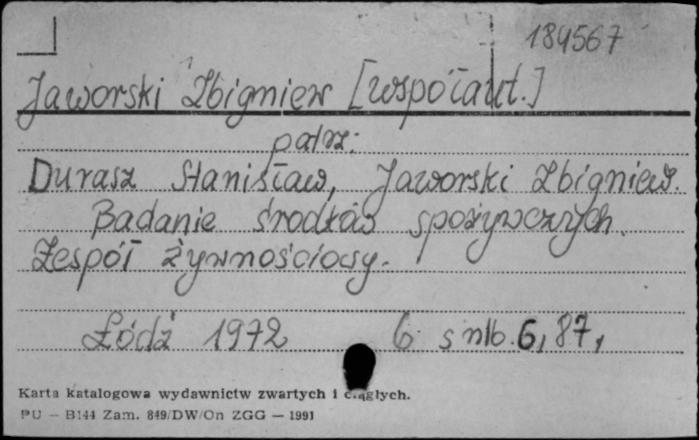 184567
Jaworski Zbigniew [współaut.]
patrz:
Durasz Stanisław, Jaworski Zbigniew.
Badanie środków spożywczych.
Zespół żywnościowy.
Łódź 1972 6 s nlb. 6, 87,
Karta katalogowa wydawnictw zwartych i ciągłych.
PU — B144 Zam. 849/DW/On ZGG — 1991